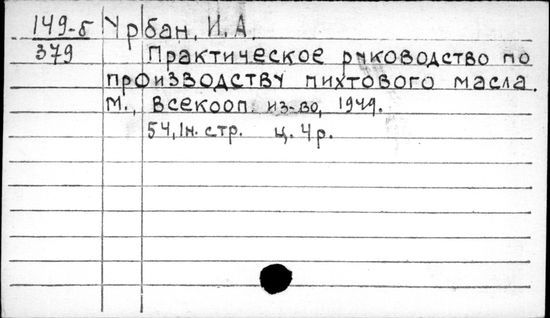 149-б Урбан, И. А.
379 Практическое руководство по
производству пихтового масла.
М., Всекооп. из-во, 1949.
54, 1н. стр. ц. 4 р.